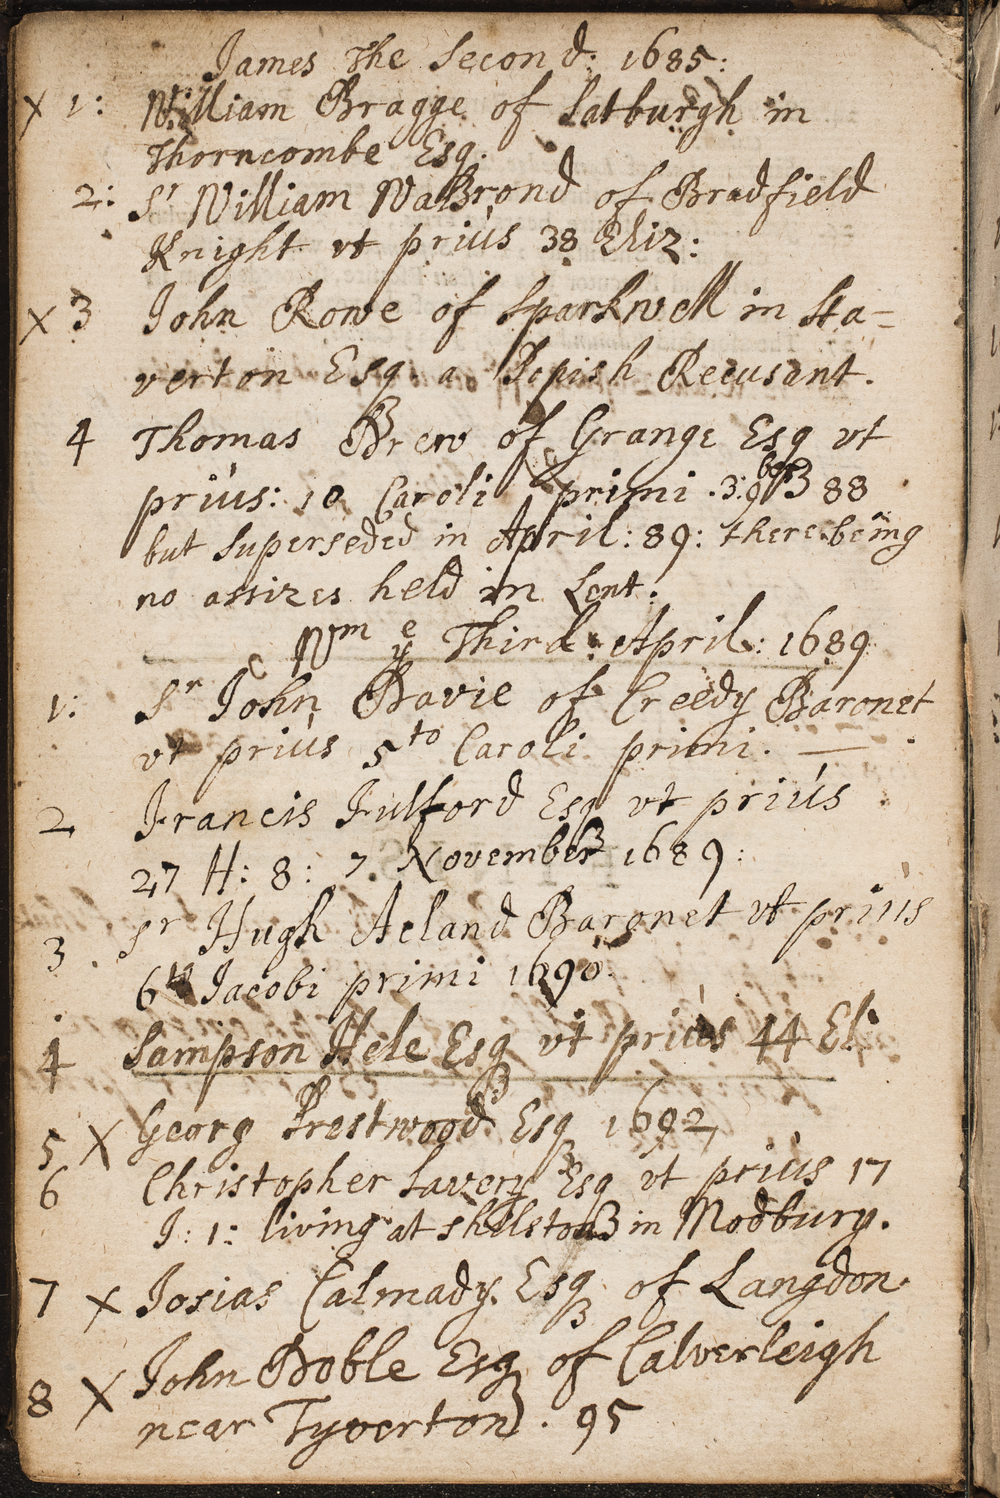 James the Second: 1685:
X 1: William Bragge of Satburgh in
Thorncombe Esq.
2: Sr William Walrond of Bradfield
Knight vt priùs 38 Eliz:
X 3 John Rowe of Sparkwell in Sta-
verton Esq a Popish Recusant.
4 Thomas Drew of Grange Esq vt
priùs: 10 Caroli primi .3. 9ber 88
but superseded in April: 89: there being
no assizes held in Lent.
Wm ye Third. April: 1689
1: Sr John Davie of Creedy Baronet
vt priùs 5to Caroli primi. —
2 Francis Fulford Esq vt priùs
27 H: 8: 7. November 1689:
3 Sr Hugh Acland Baronet vt priùs
6to Jacobi primi 1690.
4 Sampson Hele Esq vt priùs 44 El:
5 X Georg Prestwood Esq 1692
6 Christopher Savery Esq vt priùs 17
J: 1: living at Shilston in Modbury.
7 X Josias Calmady. Esq of Langdon.
8 X John Doble Esq of Calverleigh
near Tyverton. 95